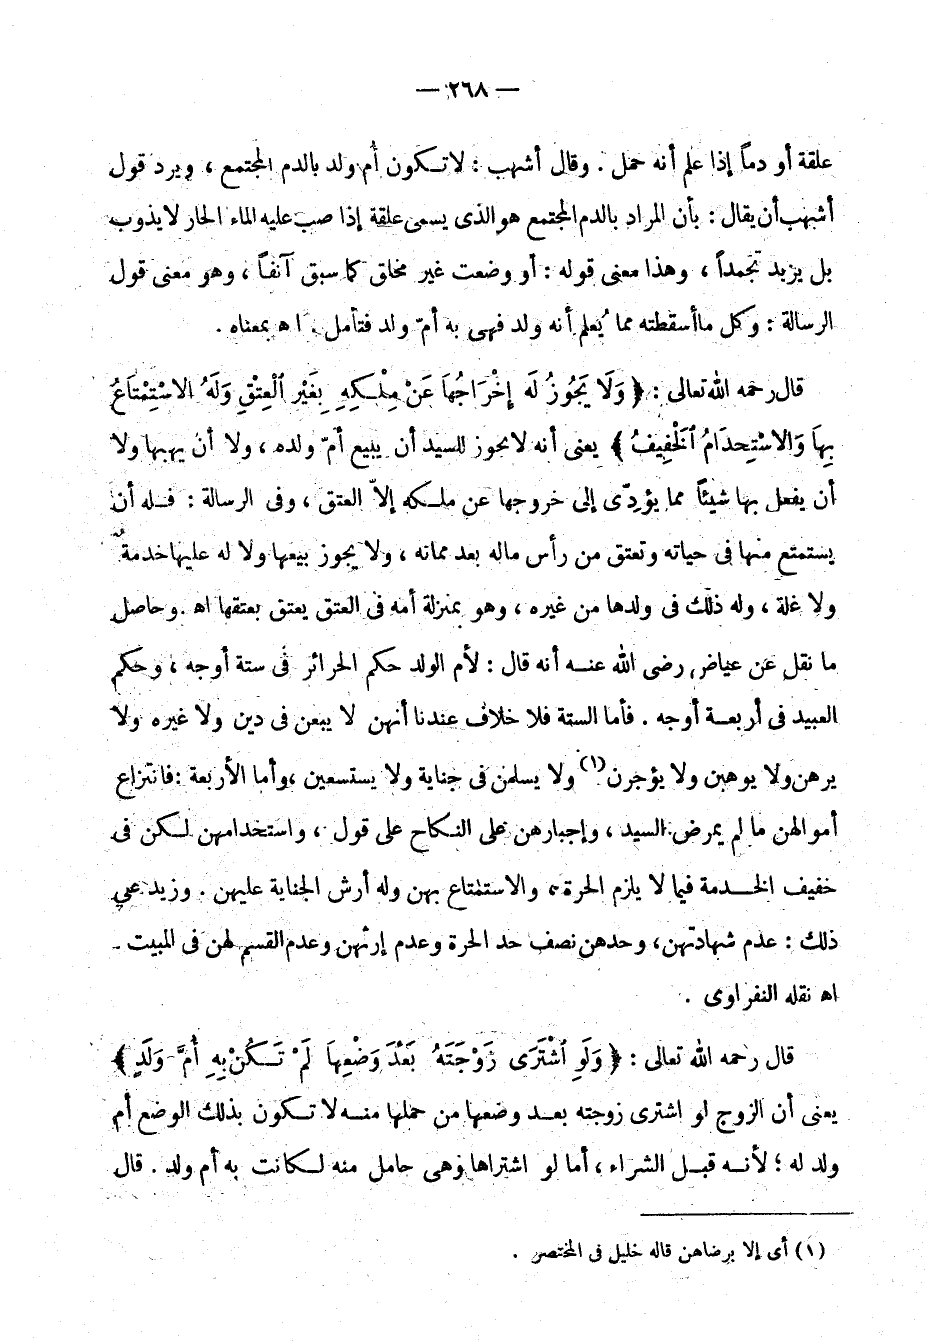 — ٢٦٨ —
علقة أو دماً إذا علم أنه حمل . وقال أشهب : لا تكون أم ولد بالدم المجتمع ، ويرد قول
أشهب أن يقال : بأن المراد بالدم المجتمع هو الذى يسمى علقة إذا صب عليه الماء الحار لا يذوب
بل يزيد تجمداً ، وهذا معنى قوله : أو وضعت غير مخلق كما سبق آنفاً ، وهو معنى قول
الرسالة : وكل ما أسقطته مما يُعلم أنه ولد فهى به أمّ ولد فتأمل . اهـ بمعناه .
قال رحمه الله تعالى : ﴿ وَلَا يَجُوزُ لَه إِخْرَاجُهَا عَنْ مِلْكِهِ بِغَيْرِ الْعِتْقِ وَلَهُ الاسْتِمْتَاعُ
بِهَا وَالاسْتِخْدَامُ الْخَفِيفُ ﴾ يعنى أنه لا يجوز للسيد أن يبيع أمّ ولده ، ولا أن يهبها ولا
أن يفعل بها شيئاً مما يؤدّى إلى خروجها عن ملكه إلاّ العتق ، وفى الرسالة : فله أن
يستمتع منها فى حياته وتعتق من رأس ماله بعد مماته ، ولا يجوز بيعها ولا له عليها خدمةٌ
ولا غلة ، وله ذلك فى ولدها من غيره ، وهو بمنزلة أمه فى العتق يعتق بعتقها اهـ . وحاصل
ما نقل عن عياض رضى الله عنه أنه قال : لأم الولد حكم الحرائر فى ستة أوجه ، وحكم
العبيد فى أربعة أوجه . فأما الستة فلا خلاف عندنا أنهن لا يبعن فى دين ولا غيره ولا
يرهن ولا يوهبن ولا يؤجرن(١) ولا يسلمن فى جناية ولا يستسعين ، وأما الأربعة : فانتزاع
أموالهن ما لم يمرض السيد ، وإجبارهن على النكاح على قول ، واستخدامهن لكن فى
خفيف الخدمة فيما لا يلزم الحرة ، والاستمتاع بهن وله أرش الجناية عليهن . وزيد على
ذلك : عدم شهادتهن ، وحدهن نصف حد الحرة وعدم إرثهن وعدم القسم لهن فى المبيت .
اهـ نقله النفراوى .
قال رحمه الله تعالى : ﴿ وَلَوِ اشْتَرَى زَوْجَتَهُ بَعْدَ وَضْعِهَا لَمْ تَكُنْ بِهِ أُمَّ وَلَدٍ ﴾
يعنى أن الزوج لو اشترى زوجته بعد وضعها من حملها منه لا تكون بذلك الوضع أم
ولد له ؛ لأنه قبل الشراء ، أما لو اشتراها وهى حامل منه لكانت به أم ولد . قال
(١) أى إلا برضاهن قاله خليل فى المختصر .